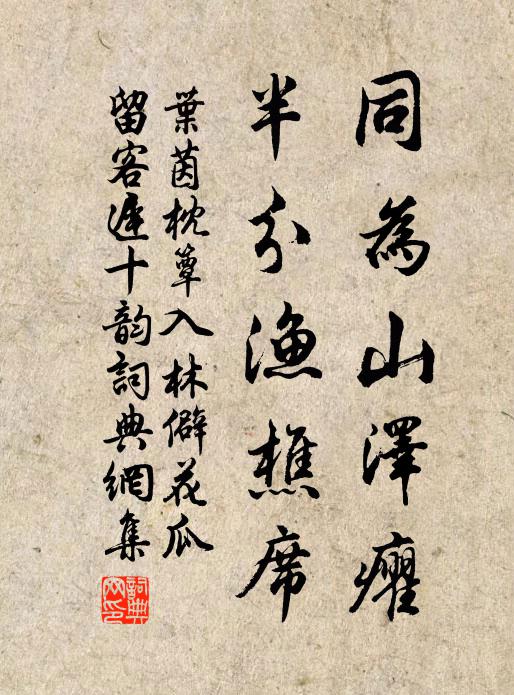 同為山澤癯
半分漁樵席
葉茵枕簟入林僻花瓜
留客遲十韵詞典網集
詞典